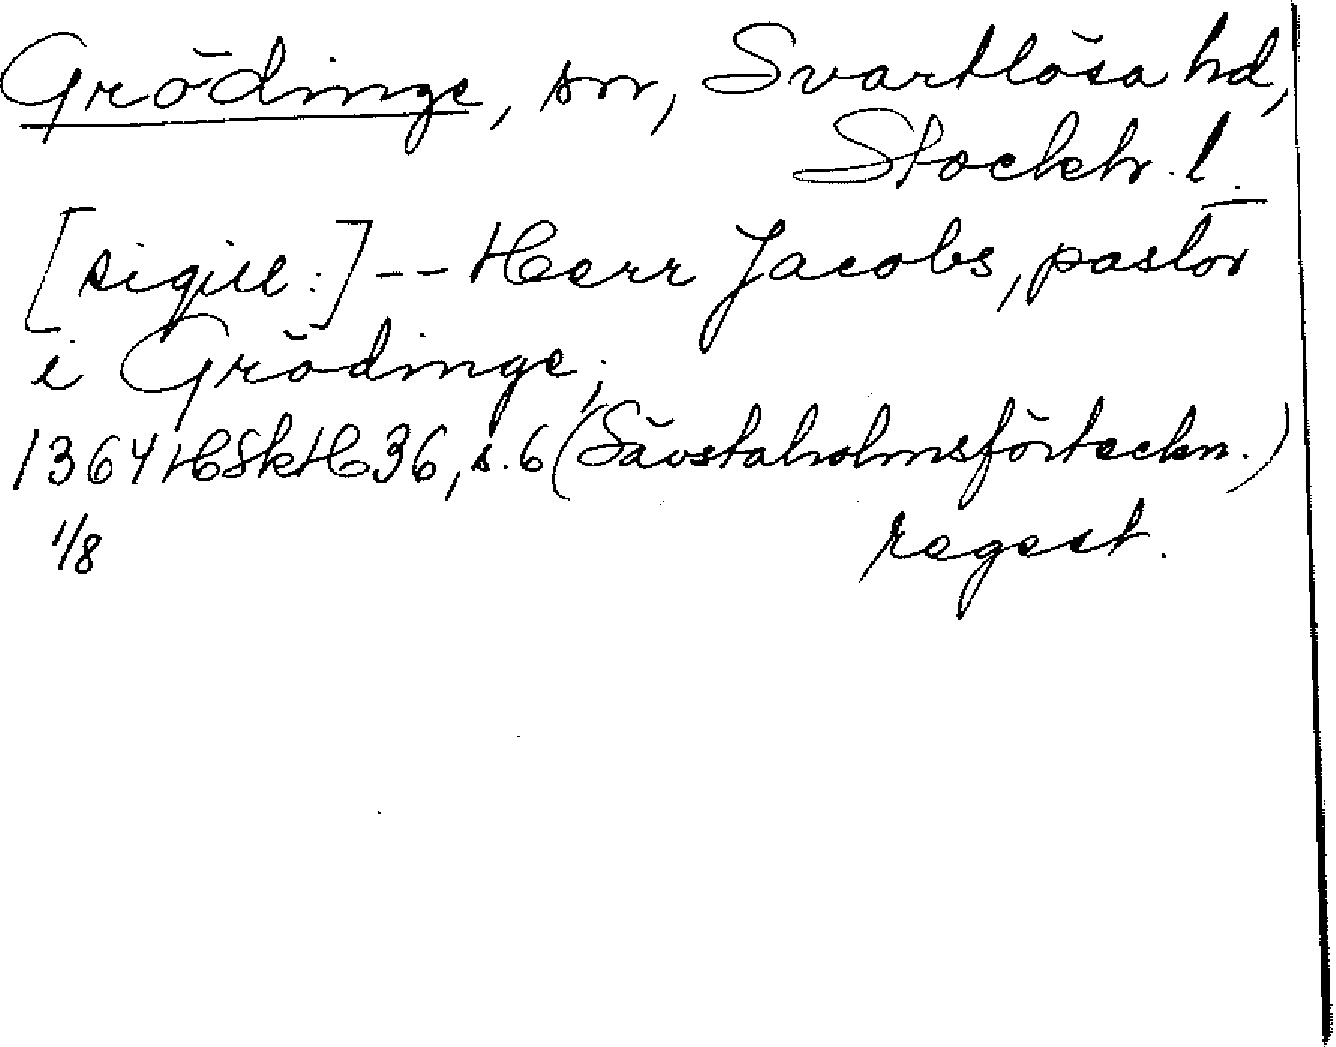 Grödinge, sn, Svartlösa hd,
Stockh. l.
[sigill:] -- Herr Jacobs, pastor
i Grödinge,
1364 HSkH 36, s. 6 (Sävstaholmsförteckn.)
1/8 regest.